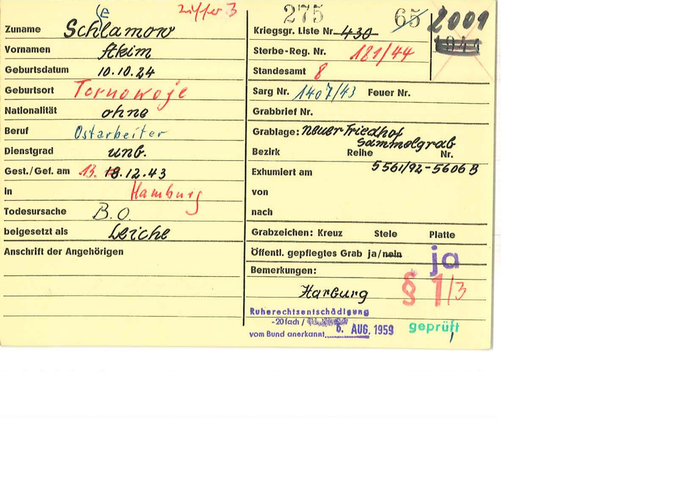 Ziffer 3
275 65 2009
Zuname Schlamow
e
Kriegsgr. Liste Nr. 430
Vornamen Akim
Sterbe-Reg. Nr. 181/44
Geburtsdatum 10.10.24
Standesamt 8
Geburtsort Ternowoje
Sarg Nr. 1407/43 Feuer Nr.
Nationalität ohne
Grabbrief Nr.
Beruf Ostarbeiter
Grablage: neuer Friedhof
Sammelgrab
Dienstgrad unb.
Bezirk Reihe Nr.
5561/92-5606 B
Gest./Gef. am 13. 12.43
Exhumiert am
in Hamburg
von
Todesursache B.O.
nach
beigesetzt als Leiche
Grabzeichen: Kreuz Stele Platte
Anschrift der Angehörigen
Öffentl. gepflegtes Grab ja/nein ja
Bemerkungen:
Harburg § 1/3
Ruherechtsentschädigung
-20fach /
vom Bund anerkannt 6. AUG. 1959
geprüft